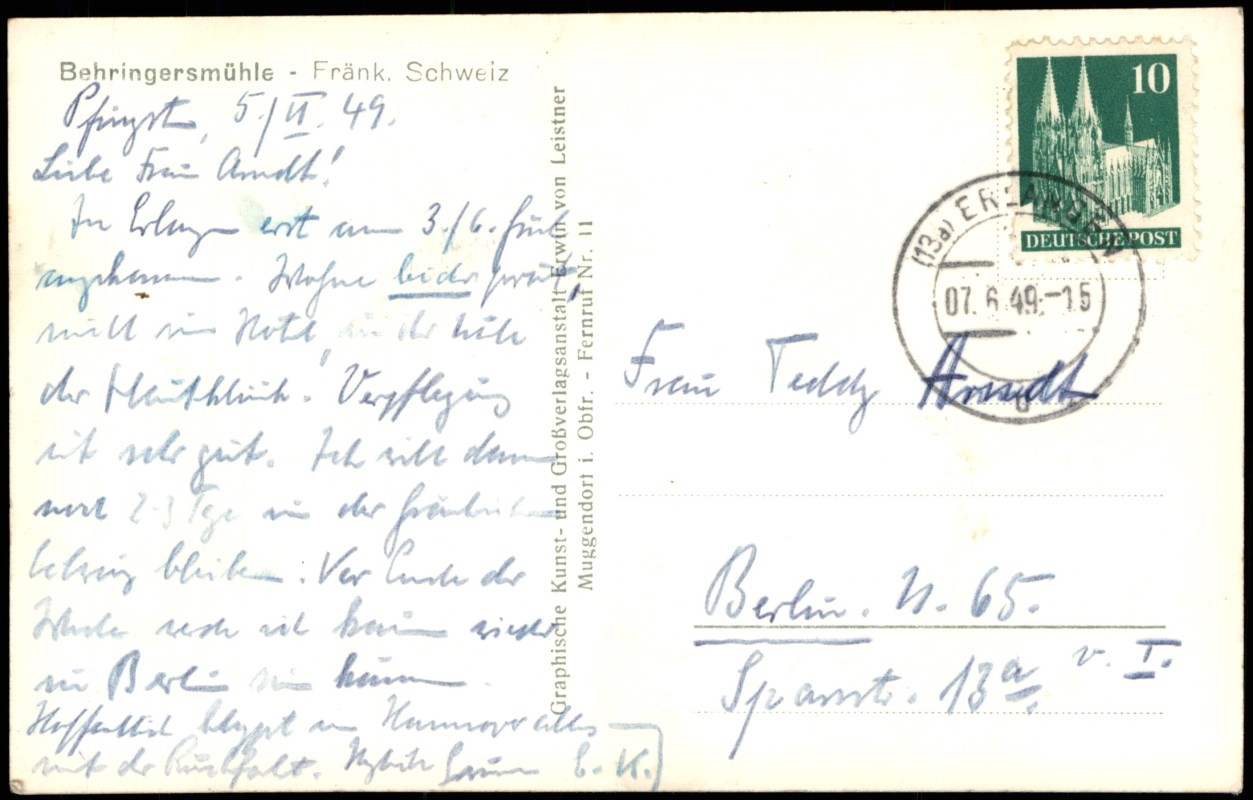 Behringersmühle - Fränk. Schweiz
Pfingst, 5./VI. 49.
Liebe Frau Arndt!
In Erlangen erst am 3./6. früh
angekommen. Wohne
im Hotel, in der
der. Verpflegung
ist sehr gut. Ich will dann
2-3 Tge in der
bleiben. Vor Ende der
Woche werde ich kaum wieder
in Berlin sein können.
Hoffentlich klappt in Hannover alles
mit der E. K.
Graphische Kunst- und Großverlagsanstalt Erwin von Leistner
Muggendorf i. Obfr. - Fernruf Nr. 11
10
DEUTSCHE POST
(13a) ERLANGEN
07.6.49.-15
Frau Teddy Arndt
Berlin. N. 65.
Sparrstr. 13a. v. I.